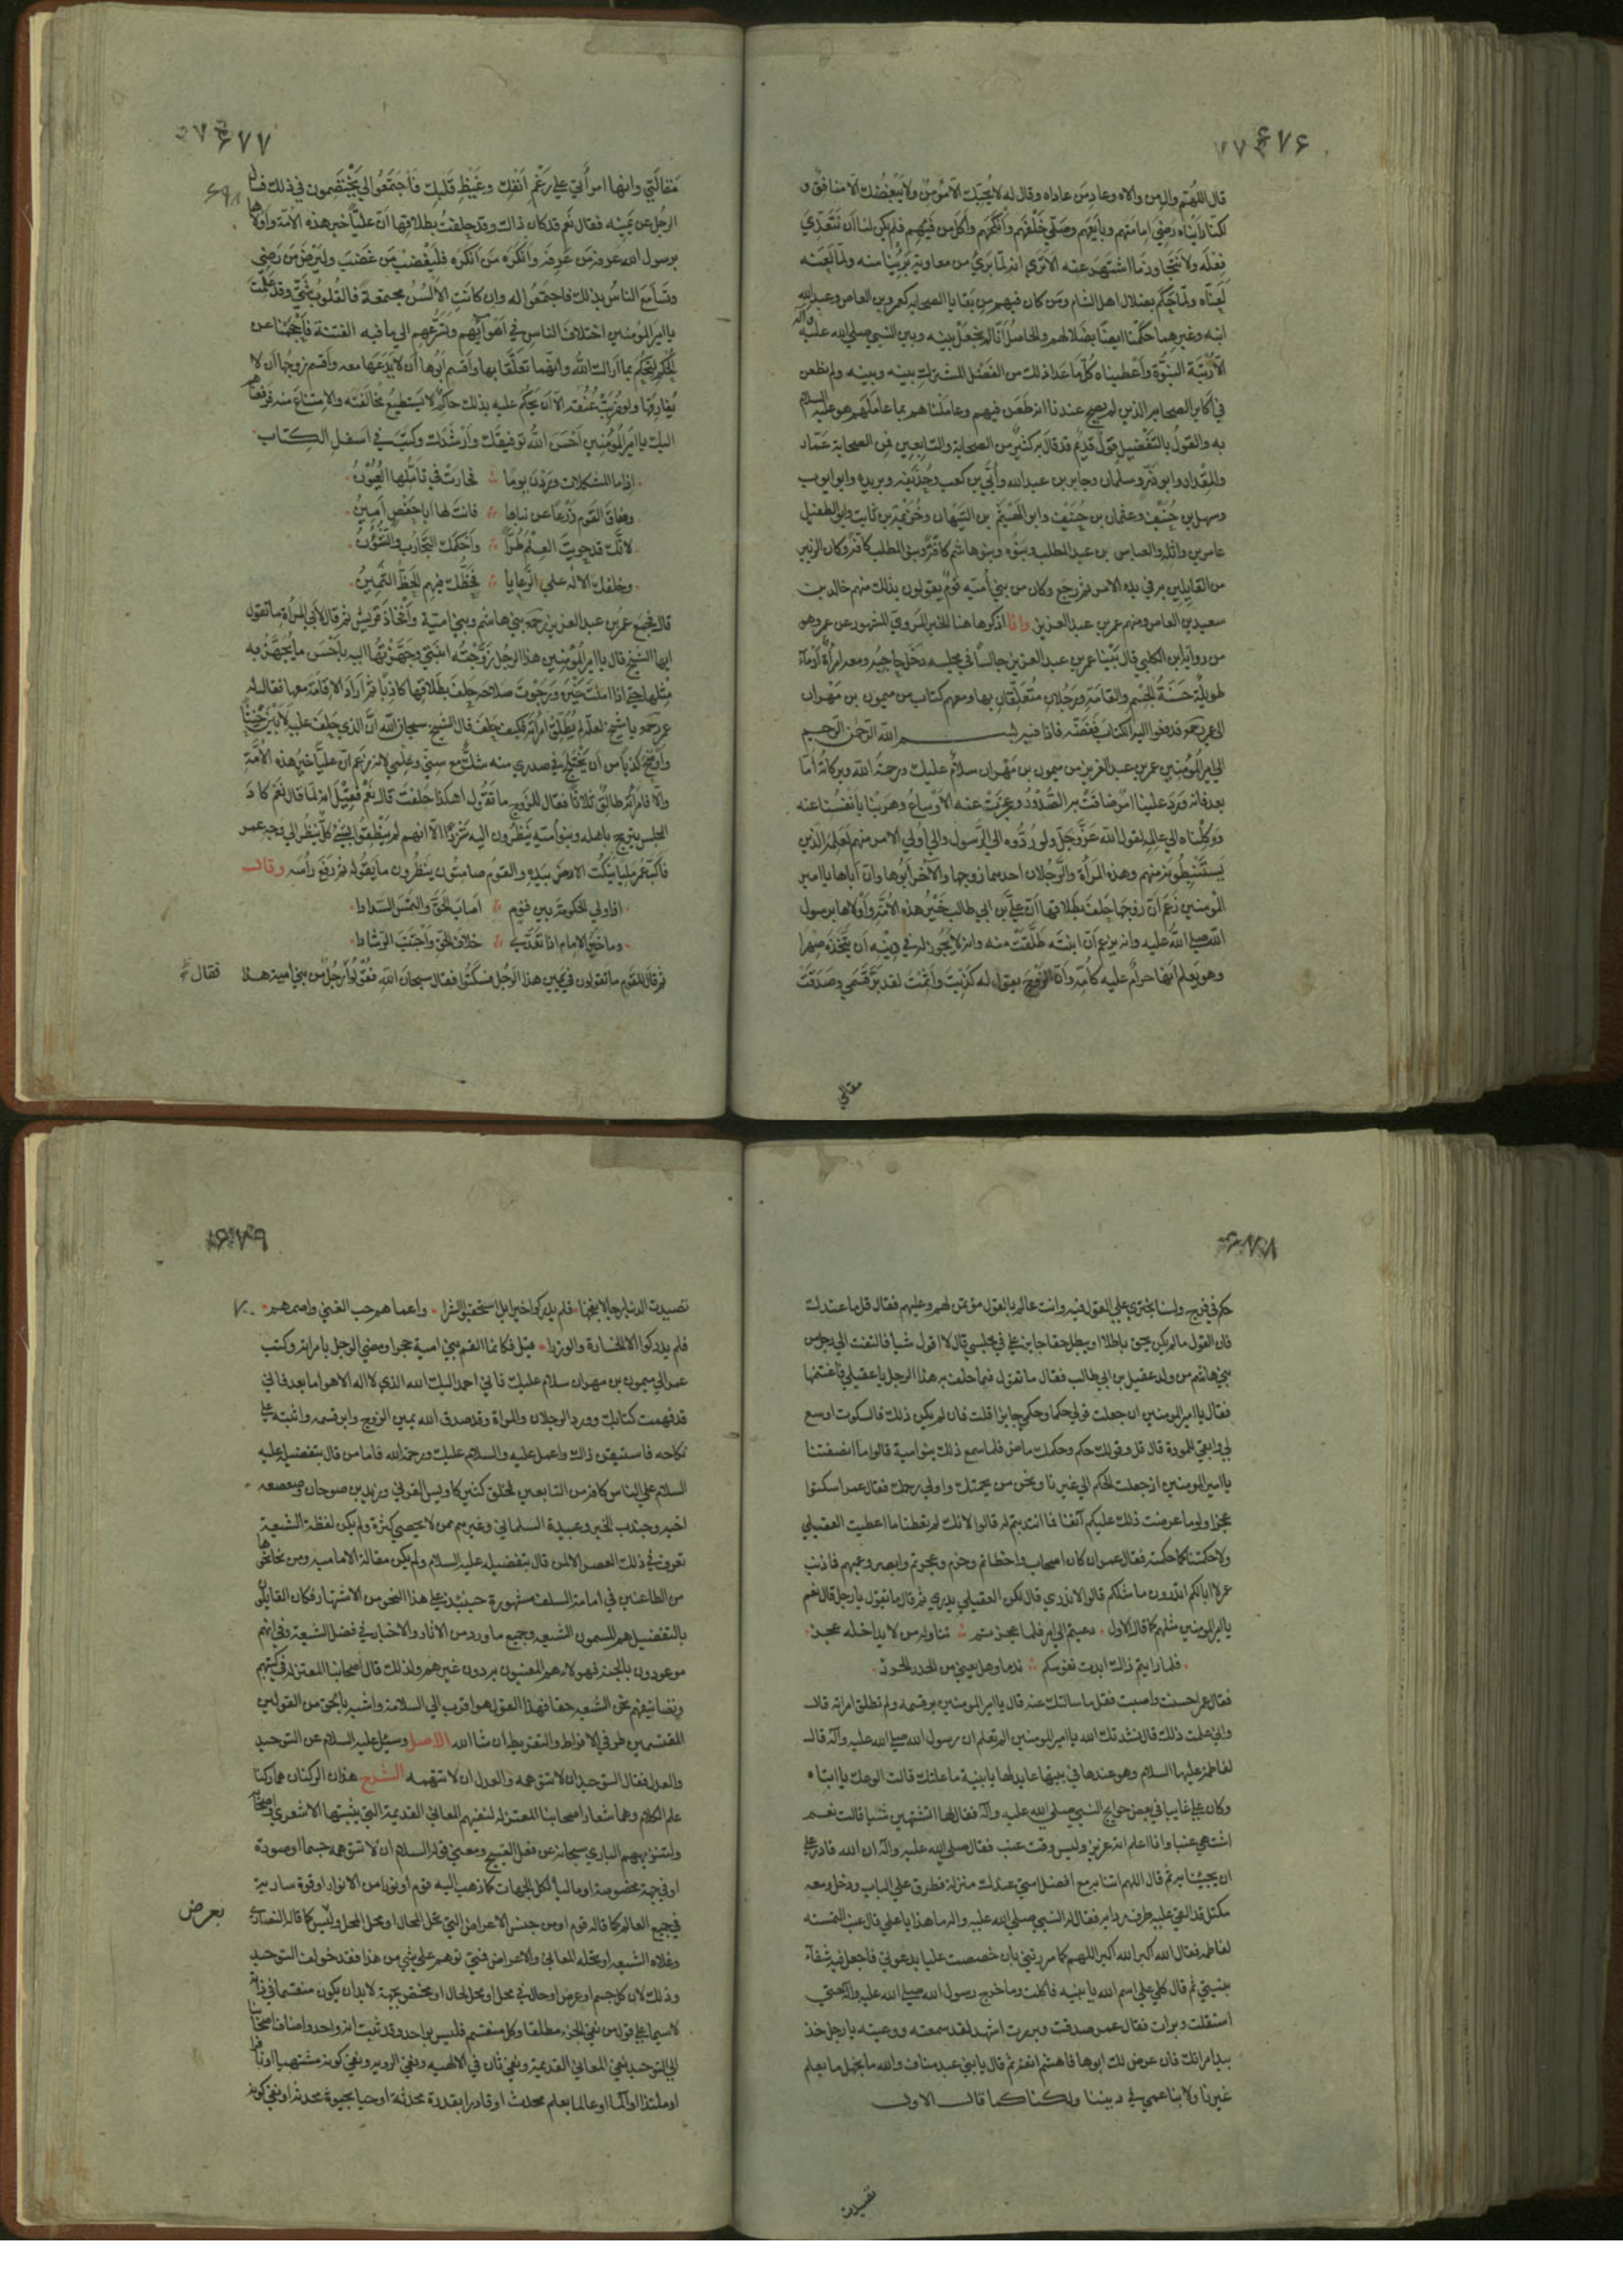 ۶۷۶
قال اللهم وال من والاه وعاد من عاداه وقال له لا يحبك الا مؤمن ولا يبغضك الا منافق و
لكنا رايناه رضي امامتهم وبايعهم وصلى خلفهم وانكحهم واكل من فيهم فلم يكن لنا ان نتعدى
فعله ولا نتجاوز ما اشتهر عنه الا ترى انه لما برئ من معاوية برئنا منه ولما لعنه
لعناه ولما حكم بضلال اهل الشام ومن كان فيهم من بقايا الصحابه كعمرو بن العاص وعبد الله
ابنه وغيرهما حكمنا ايضا بضلالهم والحاصل انا لم نجعل بينه وبين النبي صلى الله عليه وآله
الا رتبة النبوة واعطيناه كل ما عدا ذلك من الفضل المشترك بينه وبينه ولم نطعن
في اكابر الصحابه الذين لم يصح عندنا انه طعن فيهم وعاملناهم بما عاملهم هو عليه السلام
به والقول بالتفضيل قول قديم قد قال به كثير من الصحابة والتابعين فمن الصحابة عمار
والمقداد وابو ذر وسلمان وجابر بن عبد الله وأبي بن كعب وحذيفه وبريده وابو ايوب
وسهل بن حنيف وعثمان بن حنيف وابو الهيثم بن التيهان وخزيمة بن ثابت وابو الطفيل
عامر بن واثلة والعباس بن عبد المطلب وبنوه وبنو هاشم كافة وبنو المطلب كافة وكان الزبير
من القايلين به في بدء الامر ثم رجع وكان من بني أمية قوم يقولون بذلك منهم خالد بن
سعيد بن العاص ومنهم عمر بن عبد العزيز وانا اذكر هاهنا الخبر المروي المشهور عن عمر وهو
من رواية ابن الكلبي قال بينا عمر بن عبد العزيز جالسا في مجلسه دخل حاجبه ومعه امرأة أدماء
طويلة حسنة الجسم والقامة ورجلان متعلقان بها ومعهم كتاب من ميمون بن مهران
الى عمر رحمه فدفعوا اليه الكتاب ففضه فاذا فيه بسم الله الرحمن الرحيم
الى امير المؤمنين عمر بن عبد العزيز من ميمون بن مهران سلام عليك ورحمة الله وبركاته أما
بعد فانه ورد علينا امر ضاقت به الصدور وعجزت عنه الأوساع وهربنا بأنفسنا عنه
ووكلناه الى عالمه لقول الله عز وجل ولو ردوه الى الرسول والى اولي الامر منهم لعلمه الذين
يستنبطونه منهم وهذه المرأة والرجلان احدهما زوجها والآخر أبوها وان أباها يا امير
المؤمنين زعم ان زوجها حلف بطلاقها أن علي بن ابي طالب خير هذه الأمة وأولاها برسول
الله صلى الله عليه وانه يزعم أن ابنته طلقت منه وانه لا يجوز له في دينه أن يتخذه صهرا
وهو يعلم انها حرام عليه كأمه وان الزوج يقول له كذبت وأثمت لقد بر قسمي وصدقت
مقالتي
۶۷۷
۶۹۸
مقالتي وانها امرأتي على رغم انفك وغيظ قلبك فاجتمعوا الي يختصمون في ذلك فسالت
الرجل عن يمينه فقال نعم قد كان ذلك وقد حلفت بطلاقها ان عليا خير هذه الأمة وأولاها
برسول الله عرفه من عرفه وانكره من انكره فليغضب من غضب وليرض من رضي
وتسامع الناس بذلك فاجتمعوا له وان كانت الألسن مجتمعة فالقلوب شتى وقد علمت
يا امير المؤمنين اختلاف الناس في أهوائهم وتسرعهم الى ما فيه الفتنة فأحجمنا عن
الحكم لتحكم بما اراك الله وانهما تعلقا بها وأقسم أبوها أن لا يدعها معه وأقسم زوجها أن لا
يفارقها ولو ضربت عنقه الا ان يحكم عليه بذلك حاكم لا يستطيع مخالفته والامتناع منه فرفعناهم
اليك يا امير المؤمنين أحسن الله توفيقك وأرشدك وكتب في اسفل الكتاب
اذا ما المشكلات وردن يوما فحارت في تأملها العيون
وضاق القوم ذرعا عن نباها فانت لها ابا حفص أمين
لانك قد حويت العلم طرا وأحكمك التجارب والشؤون
وخلفك الاله على الرعايا فحظك فيهم الحظ الثمين
قال فجمع عمر بن عبد العزيز رحمه بني هاشم وبني امية وأفخاذ قريش ثم قال لأبي المرأة ما تقول
ايها الشيخ قال يا امير المؤمنين هذا الرجل زوجته ابنتي وجهزتها اليه بأحسن ما يجهز به
مثلها حتى اذا املت خيره ورجوت صلاحه حلف بطلاقها كاذبا ثم أراد الاقامة معها فقال له
عمر رحمه يا شيخ لعله لم يطلق امرأته فكيف حلف قال الشيخ سبحان الله ان الذي حلف عليه لأبين حنثا
وأوضح كذبا من أن يختلج في صدري منه شك مع سني وعلمي لانه زعم ان عليا خير هذه الأمة
والا فامرأته طالق ثلاثا فقال للزوج ما تقول اهكذا حلفت قال نعم فقيل انه لما قال نعم كاد
المجلس يرتج باهله وبنو أمية ينظرون اليه شزرا الا انهم لم ينطقوا بشئ كل ينظر الى وجه عمر
فأكب عمر مليا ينكت الارض بيده والقوم صامتون ينظرون ما يقوله ثم رفع رأسه وقال
اذا ولي الحكومة بين قوم اصاب الحق والتمس السدادا
وما خير الامام اذا تعدى خلاف الحق واجتنب الرشادا
ثم قال للقوم ما تقولون في يمين هذا الرجل فسكتوا فقال سبحان الله فقولوا رجل من بني امية هذا
فقال
۶۷۸
حكم في فرج ولسنا نجترئ على القول فيه وانت عالم بالقول مؤتمن لهم وعليهم فقال قل ما عندك
فان القول ما لم يكن يحق باطلا او يبطل حقا جايز علي في مجلسي قال لا اقول شيا فالتفت الى رجل من
بني هاشم من ولد عقيل بن ابي طالب فقال ما تقول فيما حلف به هذا الرجل يا عقيلي فاغتنمها
فقال يا امير المومنين ان جعلت قولي حكما وحكمي جايزا قلت فان لم يكن ذلك فالسكوت اوسع
لي وابقى للمودة قال قل وقولك حكم وحكمك ماض فلما سمع ذلك بنو امية قالوا ما انصفتنا
يا امير المومنين اذ جعلت الحكم الى غيرنا ونحن من لحمتك واولي رحمك فقال عمر اسكتوا
عجزا ولوما عرضت ذلك عليكم آنفا فما انتدبتم له قالوا لانك لم تعطنا ما اعطيت العقيلي
ولا حكمتنا كما حكمته فقال عمر ان كان اصاب واخطاتم وحزم وعجزتم وابصر وعميتم فما ذنب
عمر لا ابا لكم اتدرون ما مثلكم قالوا لا ندري قال لكن العقيلي يدري ثم قال ما تقول يا رجل قال نعم
يا امير المومنين مثلهم كما قال الاول دعيتم الى امر فلما عجزتم تناوله من لا يداخله عجز
فلما رايتم ذاك ابدت نفوسكم ندما وهل يغني من الحذر الحرز
فقال عمر احسنت واصبت فقل ما سالتك عنه قال يا امير المومنين بر قسمه ولم تطلق امراته قال
وانى علمت ذلك قال نشدتك الله يا امير المومنين الم تعلم ان رسول الله صلى الله عليه وآله قال
لفاطمة عليها السلام وهو عندها في بيتها عايد لها يا بنية ما علتك قالت الوعك يا ابتاه
وكان علي غايبا في بعض حوايج النبي صلى الله عليه وآله فقال لها اتشتهين شيا قالت نعم
اشتهي عنبا وانا اعلم انه عزيز وليس وقت عنب فقال صلى الله عليه وآله ان الله قادر على
ان يجيئنا به ثم قال اللهم ائتنا به مع افضل امتي عندك منزلة فطرق علي الباب ودخل ومعه
مكتل قد القى عليه طرف ردايه فقال له النبي صلى الله عليه واله ما هذا يا علي قال عنب التمسته
لفاطمه فقال الله اكبر الله اكبر اللهم كما سررتني بان خصصت عليا بدعوتي فاجعل فيه شفاء
بنيتي ثم قال كلي على اسم الله يا بنيه فاكلت وما خرج رسول الله صلى الله عليه وآله حتى
استقلت وبرات فقال عمر صدقت وبررت اشهد لقد سمعته ووعيته يا رجل خذ
بيد امراتك فان عرض لك ابوها فاهشم انفه ثم قال يا بني عبد مناف والله ما نجهل ما يعلم
غيرنا ولا بنا عمى في ديننا ولكنا كما قال الاول
تصيدت
۶۷۹
۷۰۰
تصيدت الدنيا رجالا بفخها فلم يدركوا خيرا بل استحقبوا الشرا واعماهم حب الغنى واصمهم
فلم يدركوا الا الخسارة والوزرا قيل فكانما القم بني امية حجرا ومضى الرجل بامراته وكتب
عمر الى ميمون بن مهران سلام عليك فاني احمد اليك الله الذي لا اله الا هو اما بعد فاني
قد فهمت كتابك وورد الرجلان والمراة وقد صدق الله يمين الزوج وابر قسمه واثبته على
نكاحه فاستيقن ذلك واعمل عليه والسلام عليك ورحمة الله فاما من قال بتفضيله عليه
السلام على الناس كافة من التابعين فخلق كثير كاويس القرني وزيد بن صوحان وصعصعه
اخيه وجندب الخير وعبيدة السلماني وغيرهم ممن لا يحصى كثرة ولم يكن لفظة الشيعة
تعرف في ذلك العصر الا لمن قال بتفضيله عليه السلام ولم يكن مقالة الاماميه ومن نحا نحوها
من الطاعنين في امامة السلف مشهورة حينئذ على هذا النحو من الاشتهار فكان القايلون
بالتفضيل هم المسمون الشيعه وجميع ما ورد من الاثار والاخبار في فضل الشيعة وانهم
موعودون بالجنة فهولاء هم المعنيون به دون غيرهم ولذلك قال اصحابنا المعتزله في كتبهم
وتصانيفهم نحن الشيعه حقا فهذا القول هو اقرب الى السلامة واشبه بالحق من القولين
المقتسمين طرفي الافراط والتفريط ان شا الله الاصل وسئل عليه السلام عن التوحيد
والعدل فقال التوحيد ان لا تتوهمه والعدل ان لا تتهمه الشرح هذان الركنان هما ركنا
علم الكلام وهما شعار اصحابنا المعتزله لنفيهم المعاني القديمة التي يثبتها الاشعري واصحابه
ولتنزيههم الباري سبحانه عن فعل القبيح ومعنى قوله عليه السلام ان لا تتوهمه جسما او صورة
او في جهة مخصوصة او ماليا لكل الجهات كما ذهب اليه قوم او نورا من الانوار او قوة سارية
في جميع العالم كما قاله قوم او من جنس الاعراض التي تحل المحال او محل المحل وليس كما قاله النصارى
وغلاة الشيعه او تحله المعاني والاعراض فمتى توهم على شي من هذا فقد خولف التوحيد
وذلك لان كل جسم او عرض او حال في محل او محل لحال او مختص بجهة لا بد ان يكون منقسما في ذاته
لاسيما على قول من نفى الجزء مطلقا وكل منقسم فليس بواحد وقد ثبت انه واحد واضاف اصحابنا
الى التوحيد نفي المعاني القديمة ونفي ثان في الالهيه ونفي الرويه ونفي كونه مشتهيا او نافرا
او ملتذا او آلما او عالما بعلم محدث او قادرا بقدرة محدثة او حيا بحيوة محدثه او نفي كونه